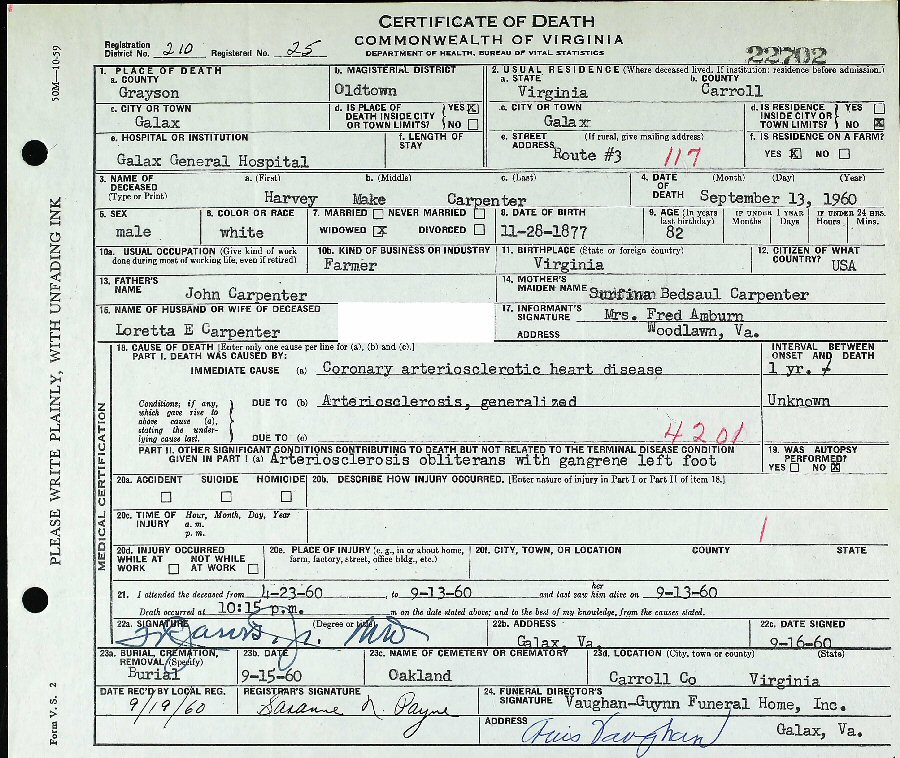 CERTIFICATE OF DEATH
COMMONWEALTH OF VIRGINIA
DEPARTMENT OF HEALTH, BUREAU OF VITAL STATISTICS
Registration District No. 210 Registered No. 25
22702
50M—10-59
1. PLACE OF DEATH
a. COUNTY
Grayson
b. MAGISTERIAL DISTRICT
Oldtown
2. USUAL RESIDENCE (Where deceased lived. If institution: residence before admission.)
a. STATE
Virginia
b. COUNTY
Carroll
c. CITY OR TOWN
Galax
d. IS PLACE OF DEATH INSIDE CITY OR TOWN LIMITS? YES X NO
c. CITY OR TOWN
Galax
d. IS RESIDENCE INSIDE CITY OR TOWN LIMITS? YES NO X
e. HOSPITAL OR INSTITUTION
Galax General Hospital
f. LENGTH OF STAY
e. STREET ADDRESS (If rural, give mailing address)
Route #3
117
f. IS RESIDENCE ON A FARM?
YES X NO
3. NAME OF DECEASED (Type or Print)
a. (First) b. (Middle) c. (Last)
Harvey Make Carpenter
4. DATE OF DEATH (Month) (Day) (Year)
September 13, 1960
5. SEX
male
6. COLOR OR RACE
white
7. MARRIED NEVER MARRIED
WIDOWED X DIVORCED
8. DATE OF BIRTH
11-28-1877
9. AGE (In years last birthday)
82
IF UNDER 1 YEAR
Months Days
IF UNDER 24 HRS.
Hours Mins.
10a. USUAL OCCUPATION (Give kind of work done during most of working life, even if retired)
10b. KIND OF BUSINESS OR INDUSTRY
Farmer
11. BIRTHPLACE (State or foreign country)
Virginia
12. CITIZEN OF WHAT COUNTRY?
USA
13. FATHER'S NAME
John Carpenter
14. MOTHER'S MAIDEN NAME
Bedsaul Carpenter
15. NAME OF HUSBAND OR WIFE OF DECEASED
Loretta E Carpenter
17. INFORMANT'S SIGNATURE Mrs. Fred Amburn
ADDRESS Woodlawn, Va.
MEDICAL CERTIFICATION
18. CAUSE OF DEATH [Enter only one cause per line for (a), (b) and (c).]
PART I. DEATH WAS CAUSED BY:
INTERVAL BETWEEN ONSET AND DEATH
IMMEDIATE CAUSE (a) Coronary arteriosclerotic heart disease
1 yr.
Conditions, if any, which gave rise to above cause (a), stating the underlying cause last.
DUE TO (b) Arteriosclerosis, generalized
Unknown
DUE TO (c)
4201
PART II. OTHER SIGNIFICANT CONDITIONS CONTRIBUTING TO DEATH BUT NOT RELATED TO THE TERMINAL DISEASE CONDITION GIVEN IN PART I (a) Arteriosclerosis obliterans with gangrene left foot
19. WAS AUTOPSY PERFORMED?
YES NO X
20a. ACCIDENT SUICIDE HOMICIDE
20b. DESCRIBE HOW INJURY OCCURRED. [Enter nature of injury in Part I or Part II of item 18.]
20c. TIME OF INJURY Hour, Month, Day, Year
a. m.
p. m.
1
20d. INJURY OCCURRED
WHILE AT WORK NOT WHILE AT WORK
20e. PLACE OF INJURY (e. g., in or about home, farm, factory, street, office bldg., etc.)
20f. CITY, TOWN, OR LOCATION COUNTY STATE
21. I attended the deceased from 4-23-60, to 9-13-60 and last saw her him alive on 9-13-60
Death occurred at 10:15 p.m. m on the date stated above; and to the best of my knowledge, from the causes stated.
22a. SIGNATURE (Degree or title)
MD
22b. ADDRESS
Galax, Va.
22c. DATE SIGNED
9-16-60
23a. BURIAL, CREMATION, REMOVAL (Specify)
Burial
23b. DATE
9-15-60
23c. NAME OF CEMETERY OR CREMATORY
Oakland
23d. LOCATION (City, town or county) (State)
Carroll Co Virginia
DATE REC'D BY LOCAL REG.
9/19/60
REGISTRAR'S SIGNATURE
Payne
24. FUNERAL DIRECTOR'S SIGNATURE Vaughan-Guynn Funeral Home, Inc.
ADDRESS Galax, Va.
Vaughan
PLEASE WRITE PLAINLY, WITH UNFADING INK
Form V. S. 2